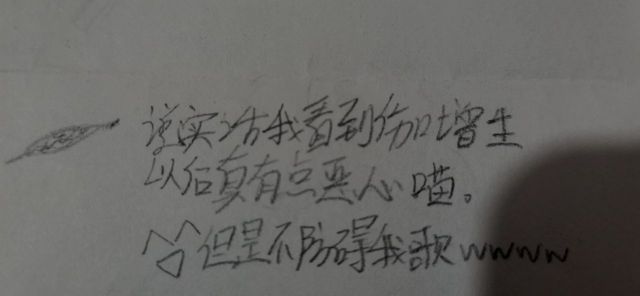 说实话我看到伤口增生
以后真有点恶心喵。
但是不防碍我歌wwww